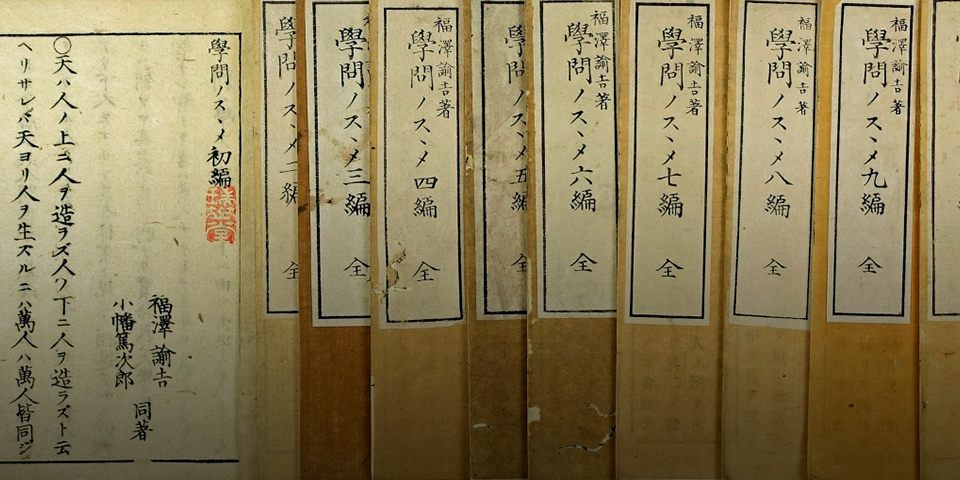 學問ノスヽメ 初編
福澤諭吉
小幡篤次郎
同著
○天ハ人ノ上ニ人ヲ造ラズ人ノ下ニ人ヲ造ラズト云
ヘリサレバ天ヨリ人ヲ生ズルニハ萬人ハ萬人皆同ジ
學問ノスヽメ二編 全
學問ノスヽメ三編 全
福澤諭吉著
學問ノスヽメ四編 全
學問ノスヽメ五編 全
福澤諭吉著
學問ノスヽメ六編 全
福澤諭吉著
學問ノスヽメ七編 全
福澤諭吉著
學問ノスヽメ八編 全
福澤諭吉著
學問ノスヽメ九編 全